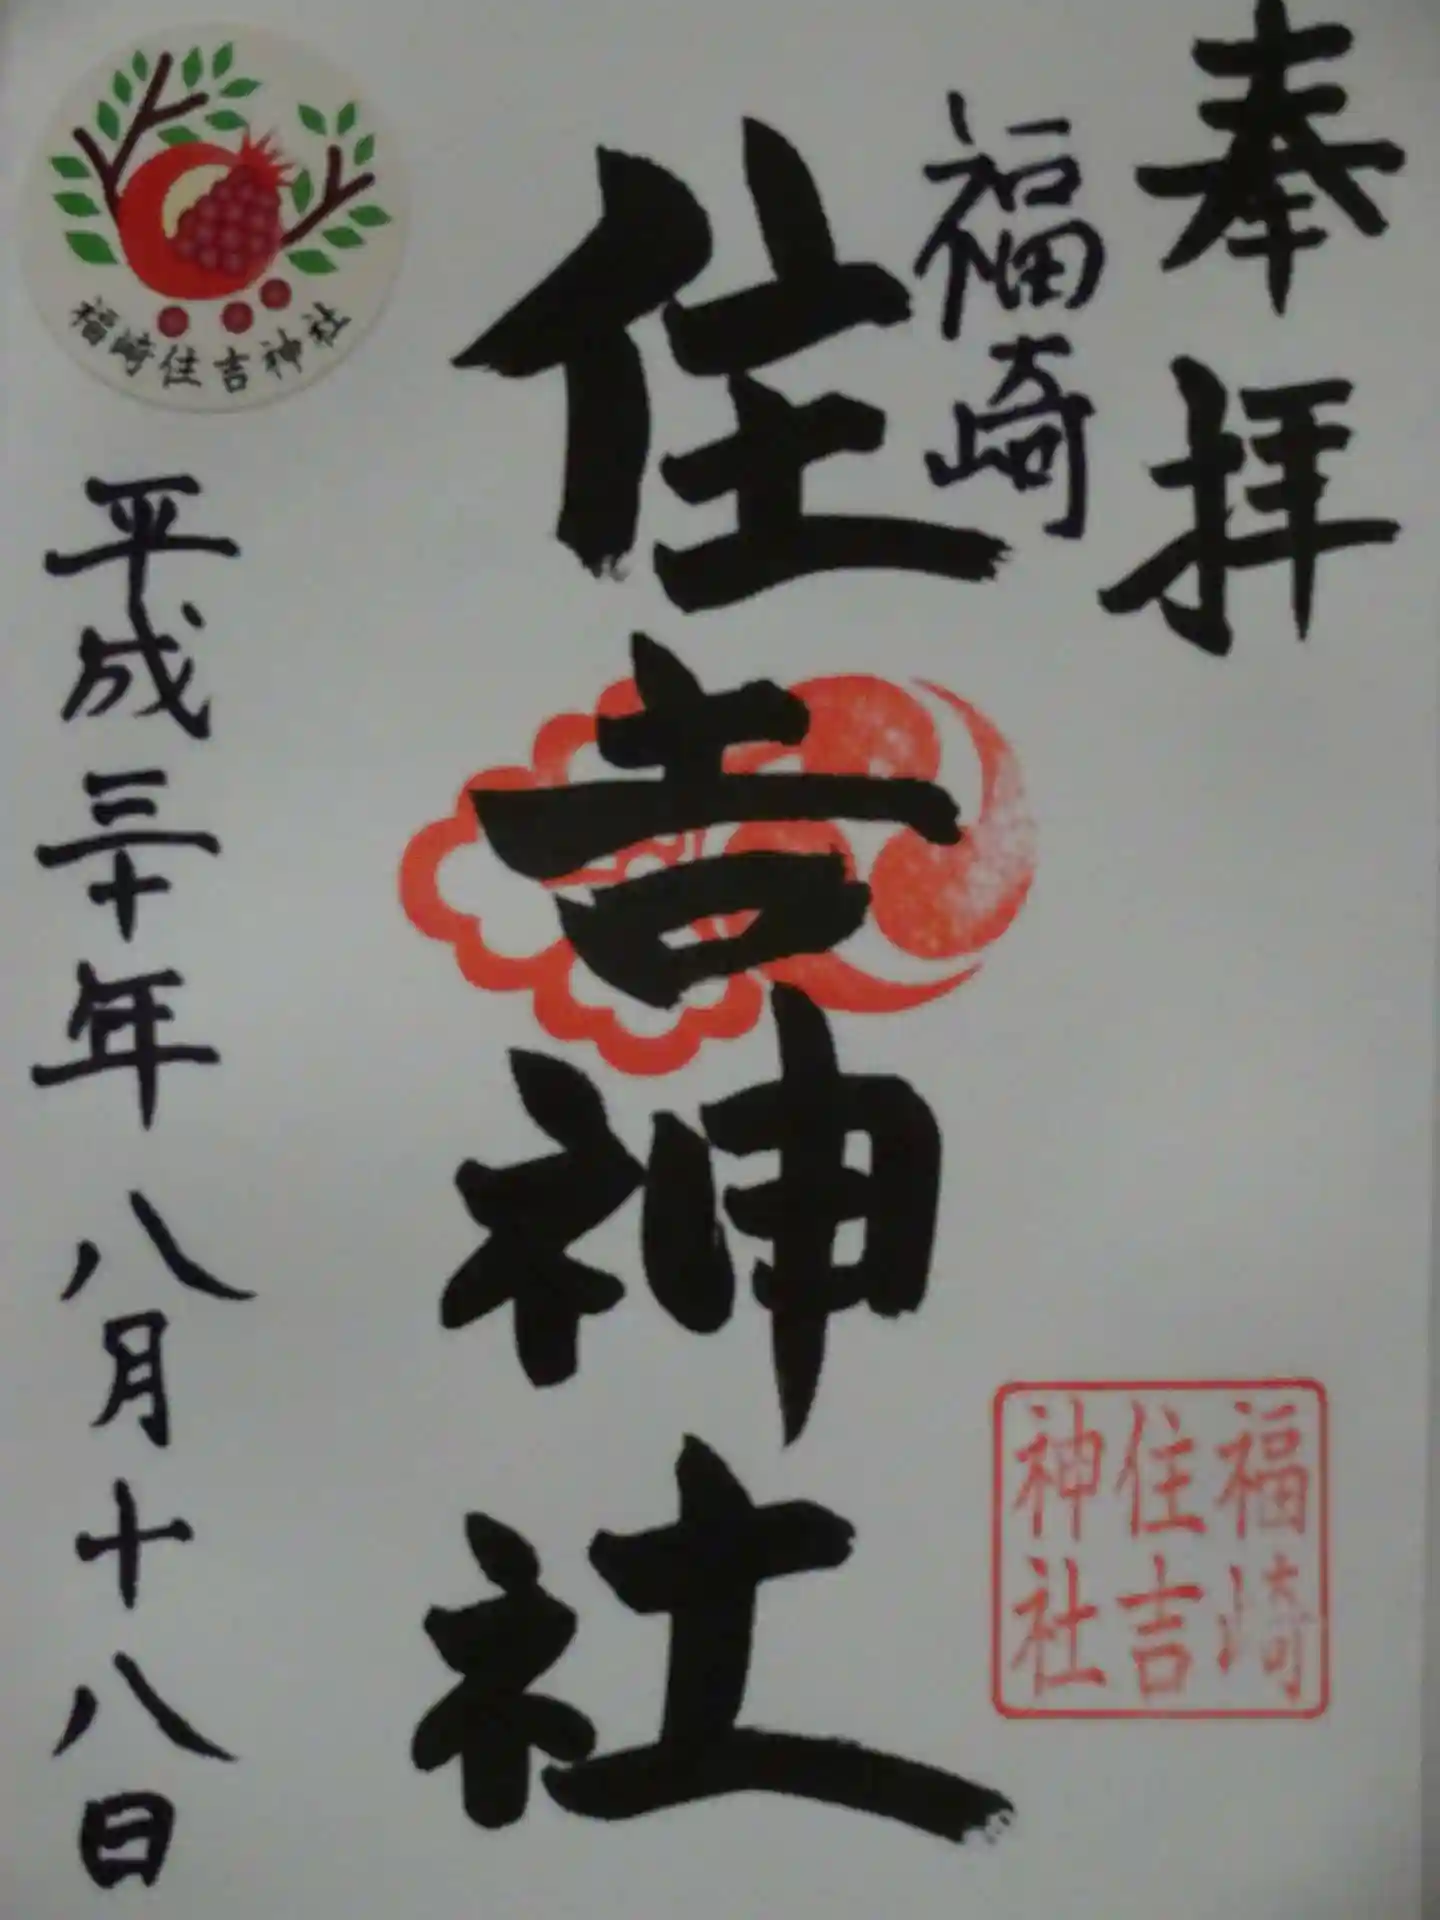 奉拝
福崎
住吉神社
福崎
住吉
神社
福崎住吉神社
平成三十年 八月十八日